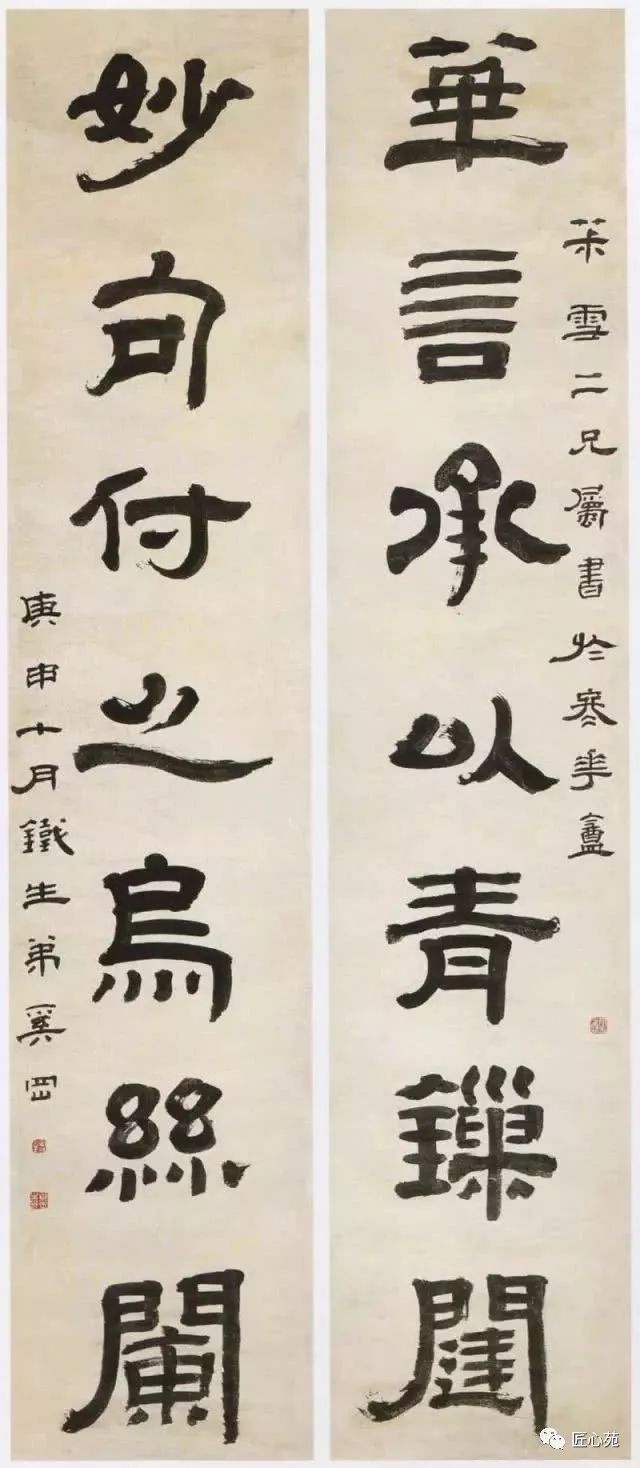 茮雪二兄屬書於寒華盦
華言承以青鏁闥
妙句付之烏絲闌
庚申十月鐵生弟奚岡
匠心苑